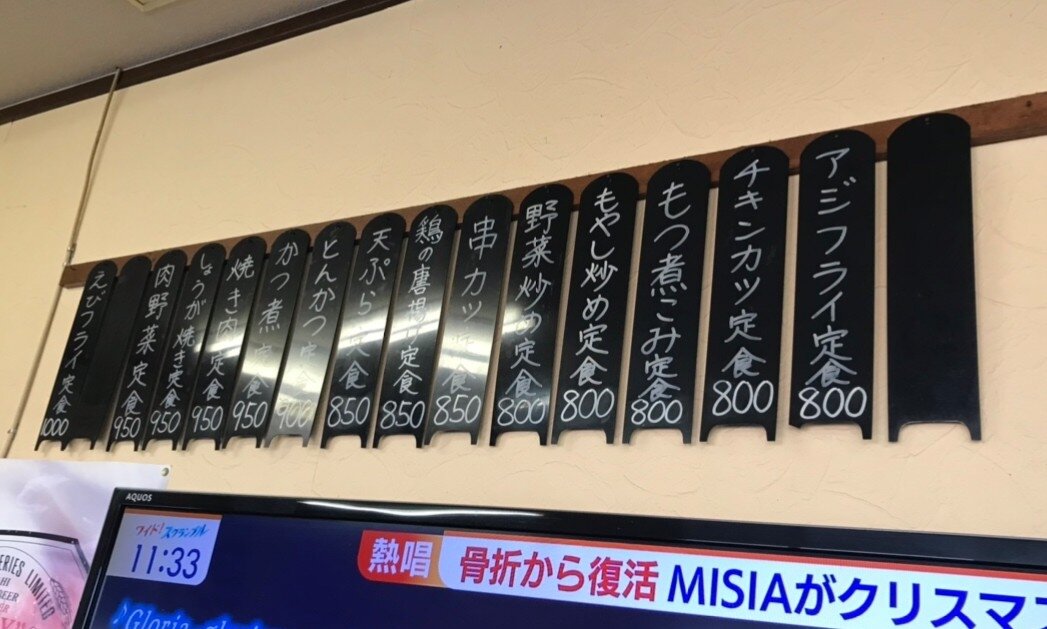 アジフライ定食 800
チキンカツ定食 800
もつ煮こみ定食 800
もやし炒め定食 800
野菜炒め定食 800
串カツ定食 850
鶏の唐揚げ定食 850
天ぷら定食 850
とんかつ定食 900
かつ煮定食 950
焼き肉定食 950
しょうが焼き定食 950
肉野菜定食 950
えびフライ定食 1000
AQUOS
ワイド!スクランブル
11:33
熱唱
骨折から復活 MISIAがクリスマス
♪Gloria
ERIES LIMITED
BEER